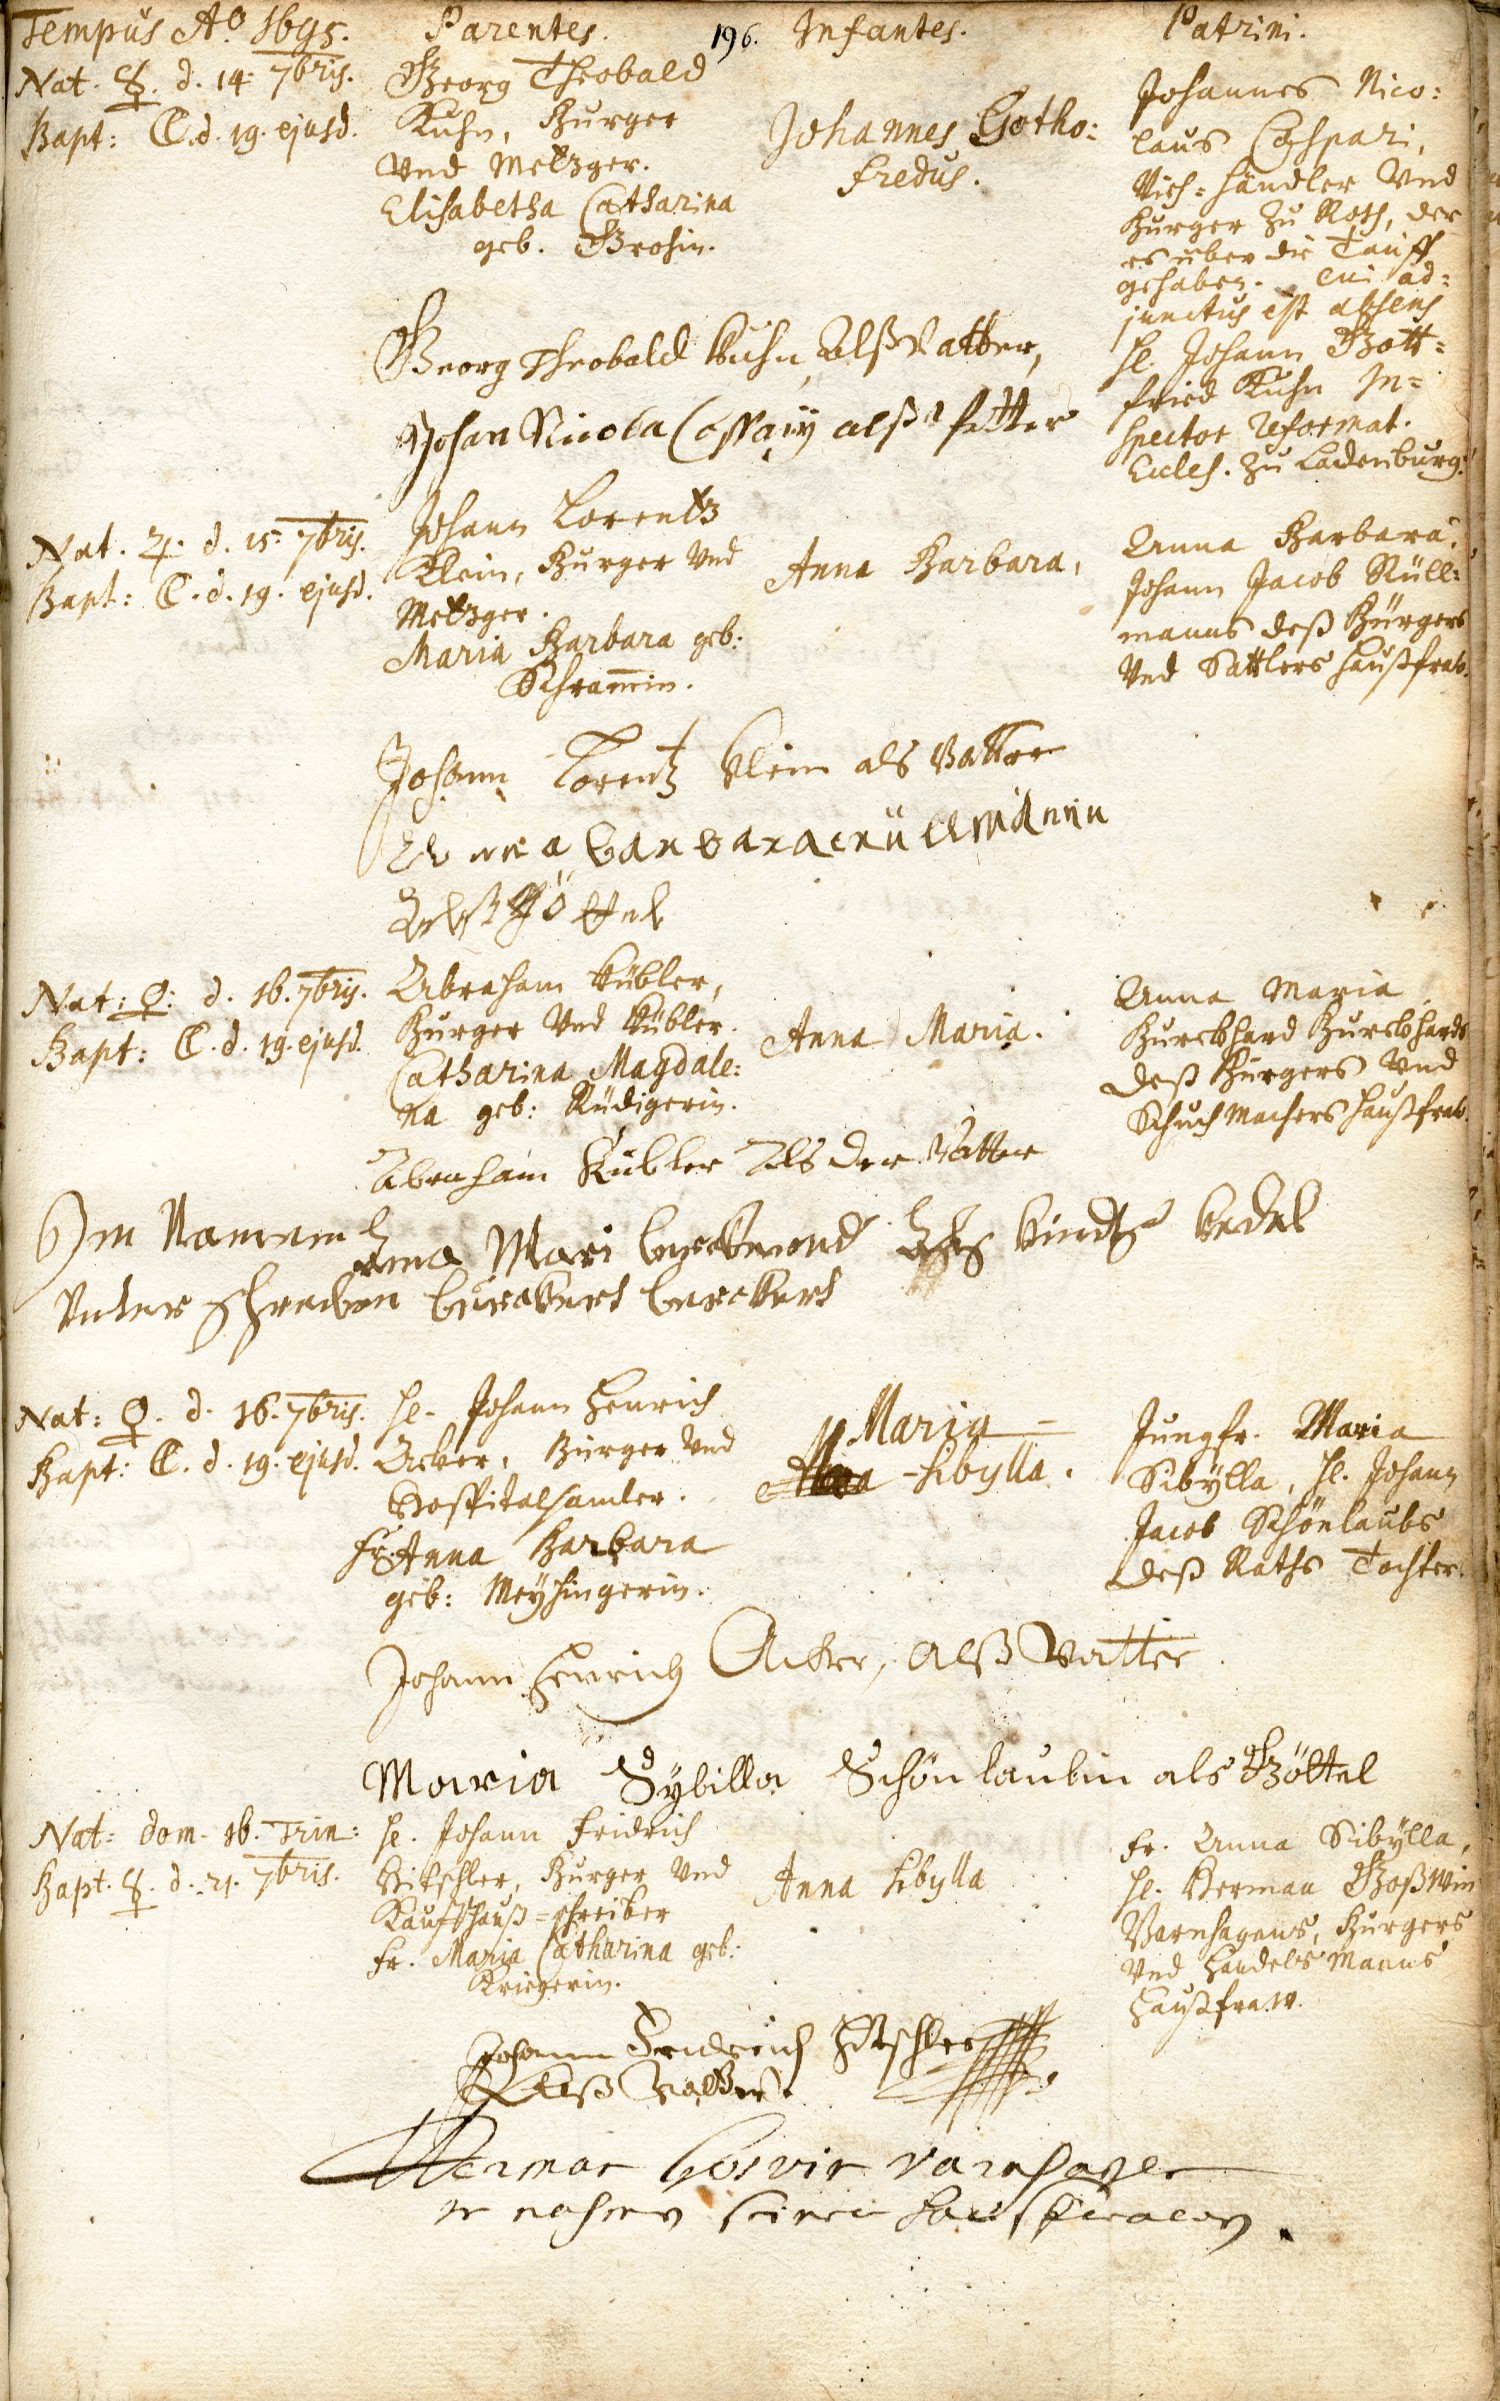 Tempus Aº 1695.
Parentes.
196.
Infantes.
Patrini.
Nat. ☿. d. 14. 7bris.
Bapt: ☾. d. 19. ejusd.
Georg Theobald
Kuhn, Burger
Vnd Metzger.
Elisabetha Catharina
geb. Grosin.
Johannes Gotho:
fredus.
Johannes Nico:
laus Caspari,
Vieh=händler Vnd
Burger zu Roth, der
es über die Tauff
gehaben. cui ad=
junctus est absens
H. Johann Gott=
fried Kuhn In=
spector Reformat.
Eccles. zu Ladenburg.
Georg Theobald Kuhn, Alß Vatter,
Johan Nicola alß petter
Nat. ♃. d. 15. 7bris.
Bapt: ☾. d. 19. ejusd.
Johann Lorentz
Klein, Burger Vnd
Metzger.
Maria Barbara geb:
Schram̅in.
Anna Barbara,
Anna Barbara,
Johann Jacob Rüll=
manns deß Bürgers
Vnd Sattlers Haußfraw.
Johann Lorentz Klein als Vatter
Anna barbara rüllmännin
Alß göttel
Nat: ♀. d. 16. 7bris.
Bapt: ☾. d. 19. ejusd.
Abraham Kübler,
Burger Vnd Kübler.
Catharina Magdale:
na geb: Rüdigerin.
Anna Maria.
Anna Maria
Burckhard Burckhards
deß Bürgers Vnd
Schuchmachers Haußfraw.
Abraham Kübler Als der Vatter
Im Namen
Anna Mari Kindts
Vnter schreiben burckhert burckhert
Nat: ♀. d. 16. 7bris.
Bapt: ☾. d. 19. ejusd.
H. Johann Henrich
Acker, Burger Vnd
Hospitalsamler.
Fr. Anna Barbara
geb: Meysingerin.
Maria=
Sibylla.
Jungfr. Maria
Sibÿlla, H. Johann
Jacob Schönlaubs
deß Raths Tochter.
Johann Henrich Acker, alß Vatter
Maria Sybilla Schönlaubin als Göttel
Nat: dom. 16. Trin:
Bapt. ☿. d. 21. 7bris.
H. Johann Fridrich
Hitschler, Burger Vnd
Kauffhauß=schreiber
Fr. Maria Catharina geb:
Kriegerin.
Anna Sibylla
Fr. Anna Sibÿlla,
H. Herman Goßwin
Varnhagens, Burgers
Vnd Handelsmanns
Haußfraw.
Johann Fridrich Hitschler
Alß Vatter.
Herman Gosvin Varnhagen
in nahmen seiner haus frawen.